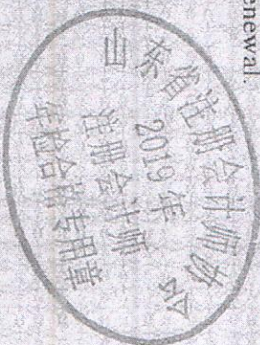 enewal.
山东省注册会计师协会
2019年
注册会计师
年检合格专用章